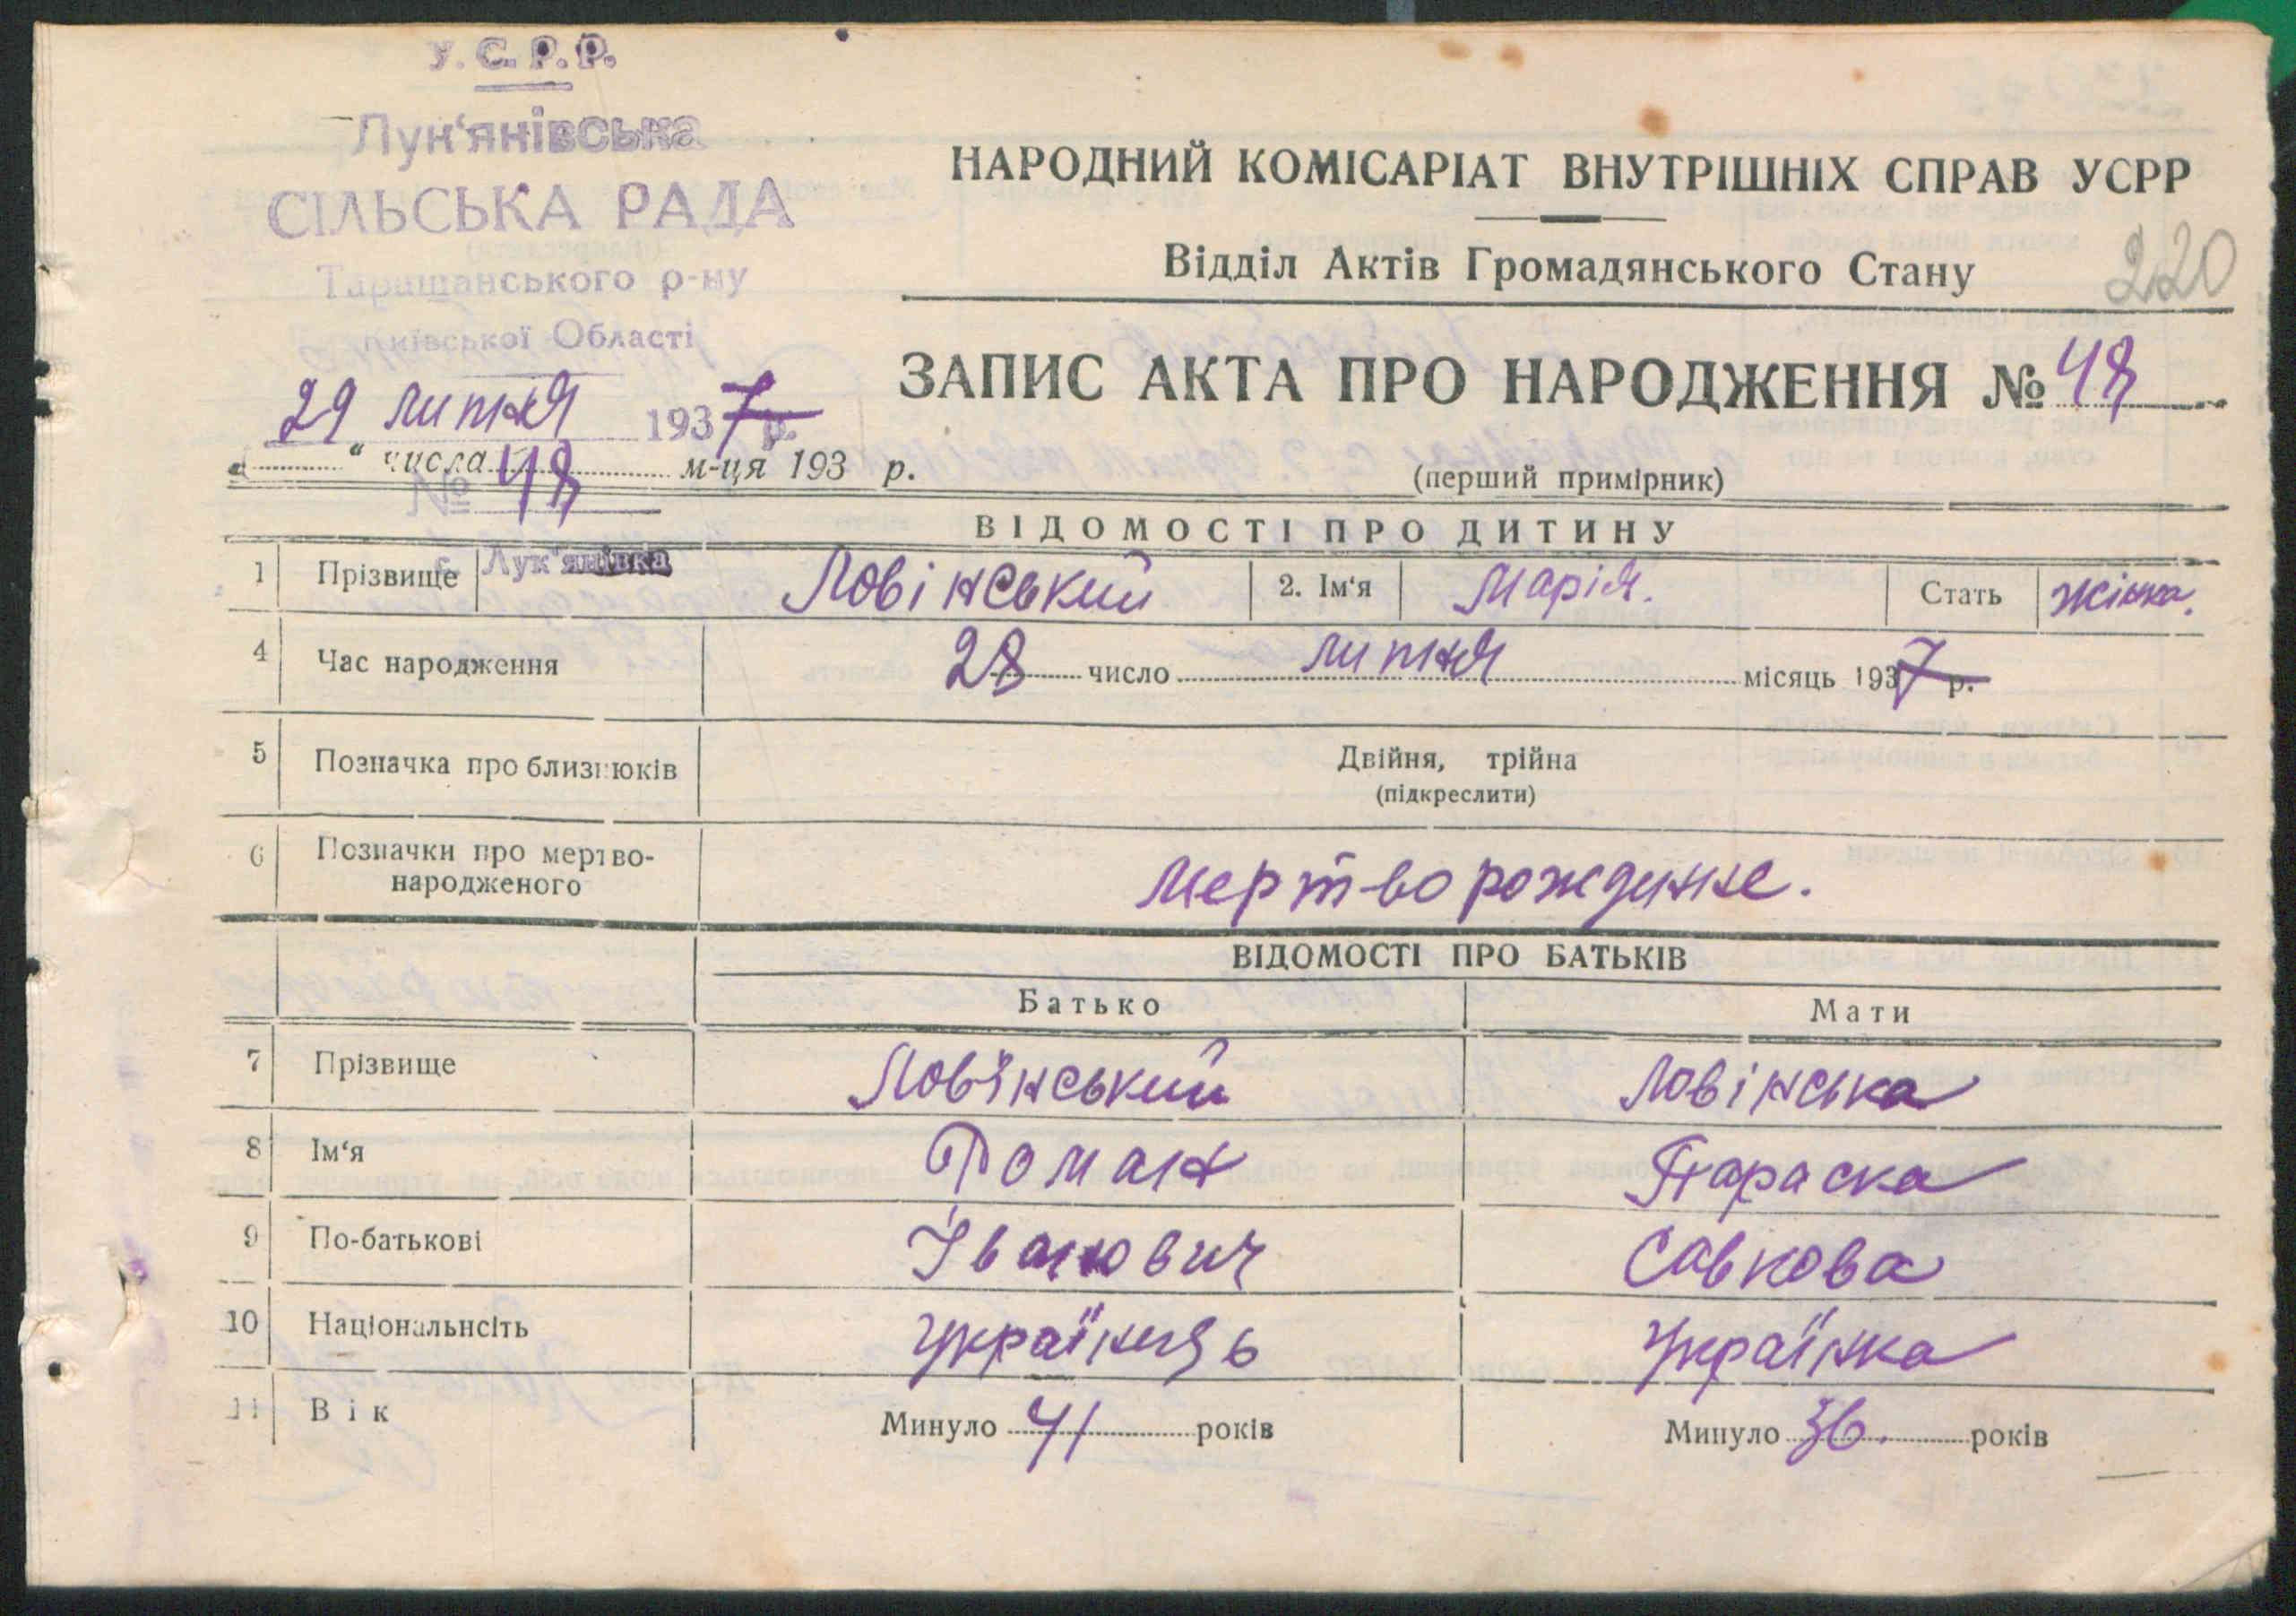 У.С.Р.Р.
Лук'янівська
СІЛЬСЬКА РАДА
Таращанського р-ну
Київської Області
29 липня 1937 р.
"......" числа ...... м-ця 193 р.
№ 48
с. Лук'янівка
НАРОДНИЙ КОМІСАРІАТ ВНУТРІШНІХ СПРАВ УСРР
Відділ Актів Громадянського Стану
220
ЗАПИС АКТА ПРО НАРОДЖЕННЯ № 48
(перший примірник)
ВІДОМОСТІ ПРО ДИТИНУ
1 Прізвище Ловінський 2. Ім'я Марія. Стать жінка.
4 Час народження 28 число липня місяць 1937 р.
5 Позначка про близнюків Двійня, трійна
(підкреслити)
6 Позначки про мертво-
народженого мертво рожденне.
ВІДОМОСТІ ПРО БАТЬКІВ
Батько Мати
7 Прізвище Ловінський Ловінська
8 Ім'я Роман Параска
9 По-батькові Іванович Савкова
10 Національнсіть Українець Українка
11 Вік Минуло 41 років Минуло 36. років